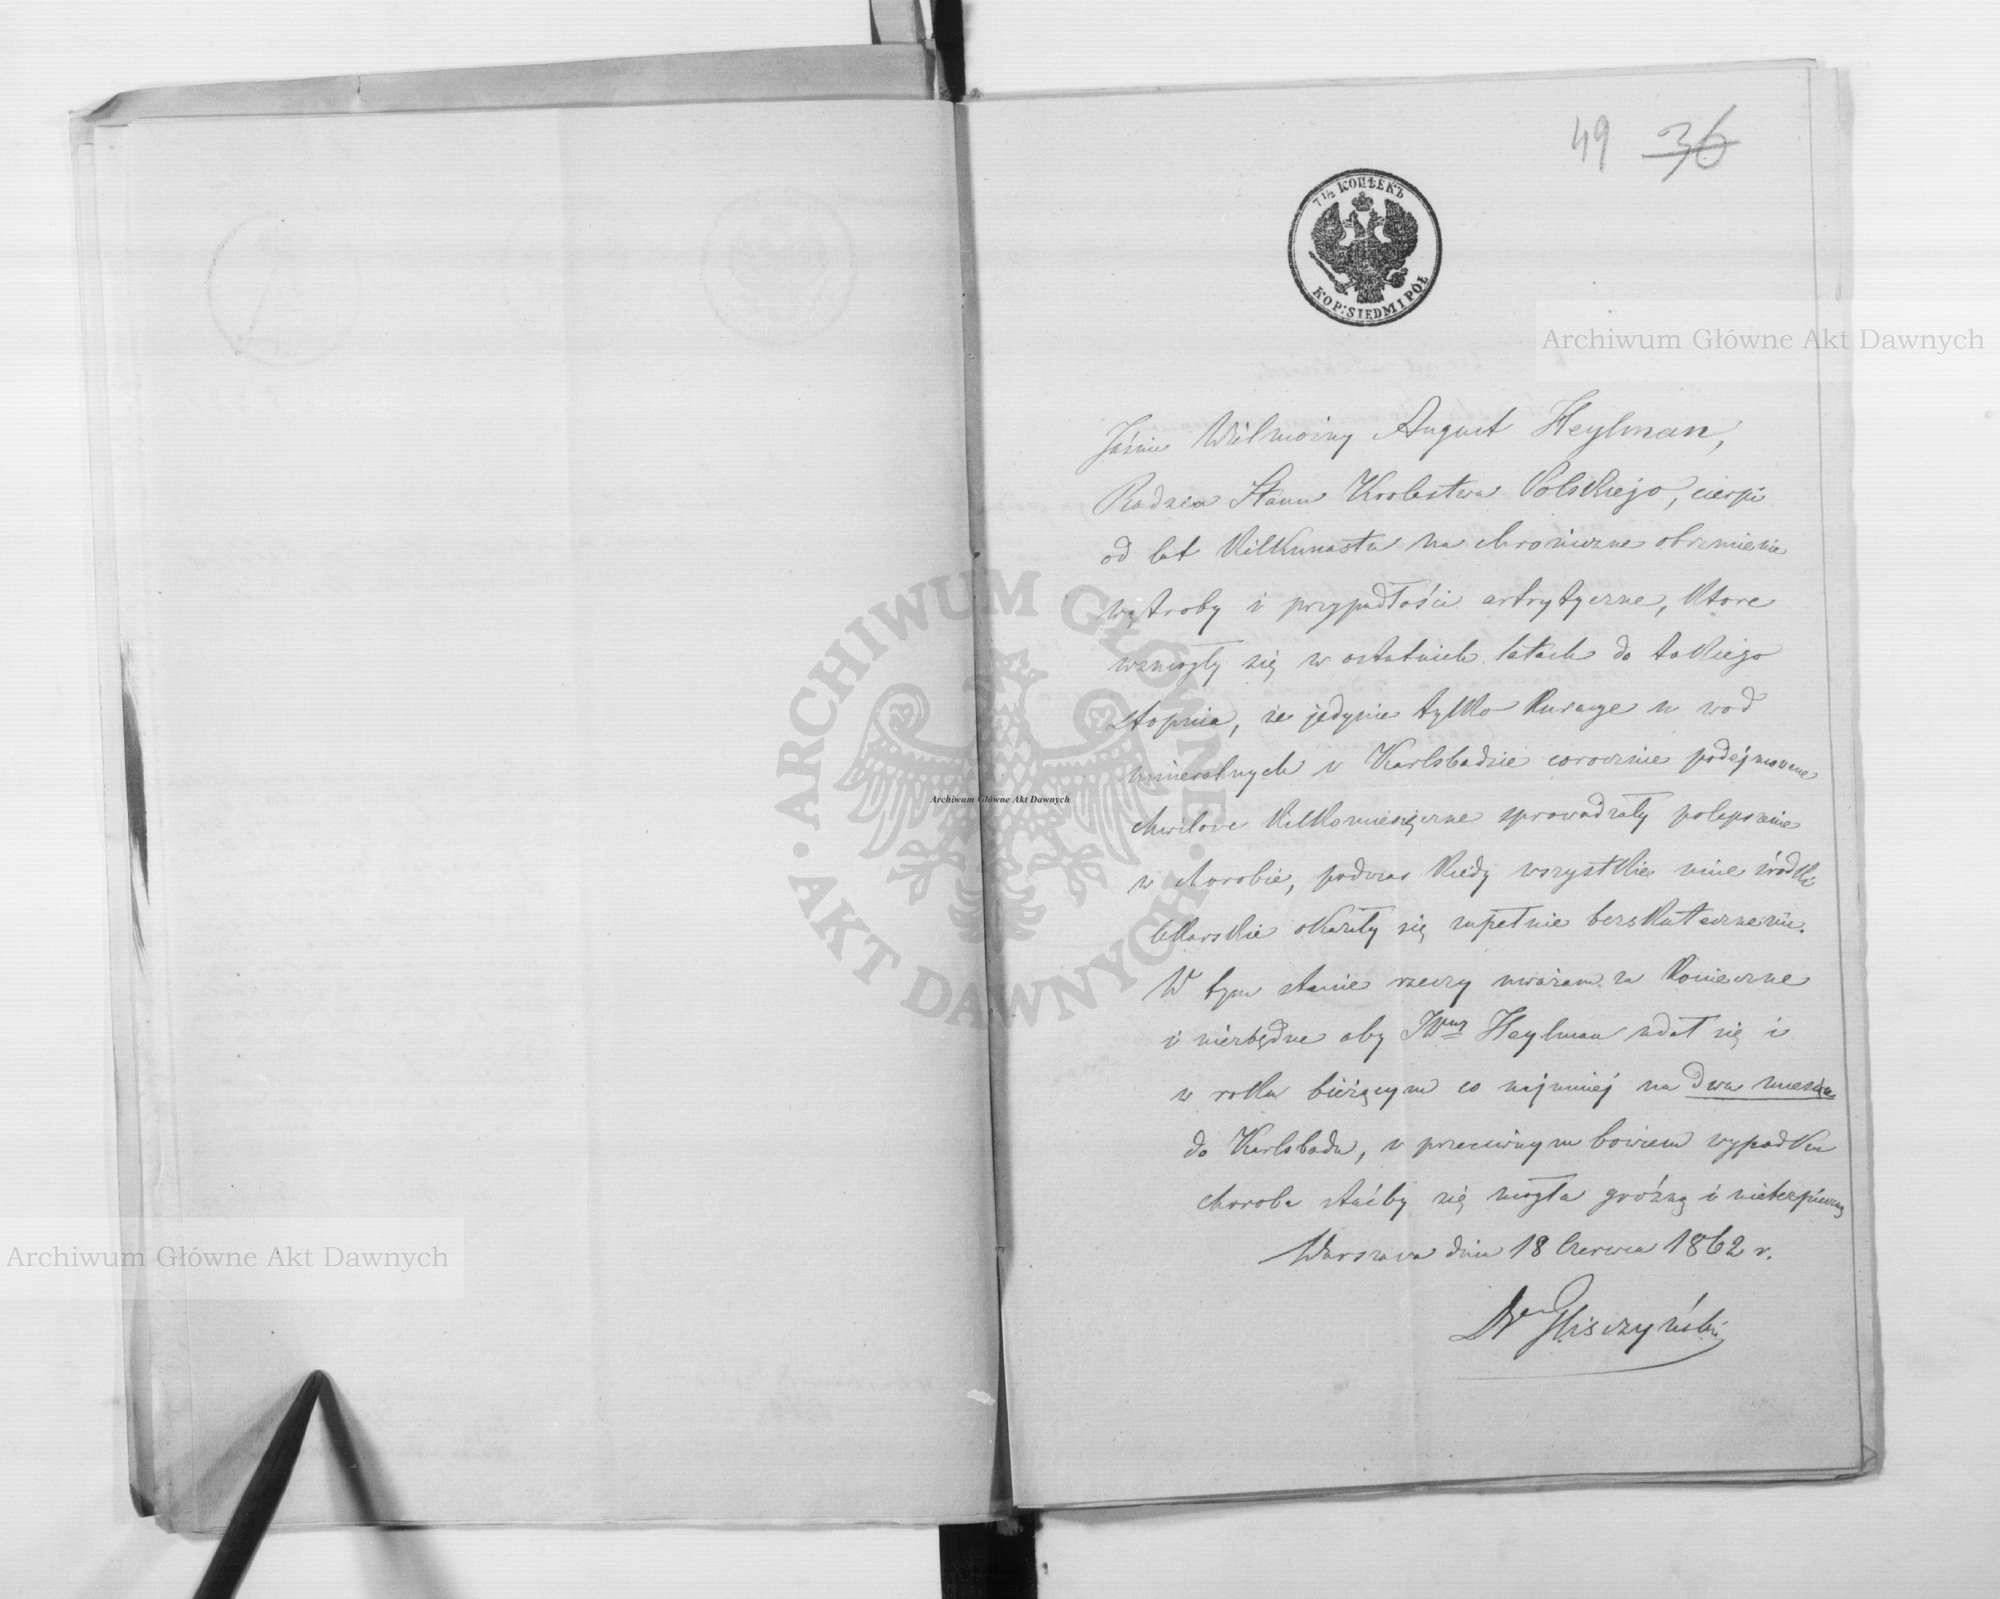 49 36
7 1/2 КОПѢЕКЪ
KOP: SIEDM I PÓŁ
Archiwum Główne Akt Dawnych
Jaśnie Wielmożny August Heylman,
Radzca Stanu Krolestwa Polskiego, cierpi
od lat kilkunastu na chroniczne obrzmienie
wątroby i przypadłości artrytyczne, ktore
wzmogły się w ostatnich latach do takiego
stopnia, że jedynie tylko kuracye u wod
mineralnych w Karlsbadzie corocznie podéjmowane
chwilowe kilkomiesięczne sprowadzały polepszenie
w chorobie, podczas kiedy wszystkie inne środki
lekarskie okazały się zupełnie bezskutecznemi.
W tym stanie rzeczy uważam za konieczne
i niezbędne aby JWny Heylman udał się i
w roku bieżącym co najmniej na dwa miesiące
do Karlsbadu, w przeciwnym bowiem wypadku
choroba staćby się mogła groźną i niebezpieczną
Warszawa dnia 18 Czerwca 1862 r.
Dr Gliszczyński
ARCHIWUM GŁÓWNE · AKT DAWNYCH ·
Archiwum Główne Akt Dawnych
Archiwum Główne Akt Dawnych